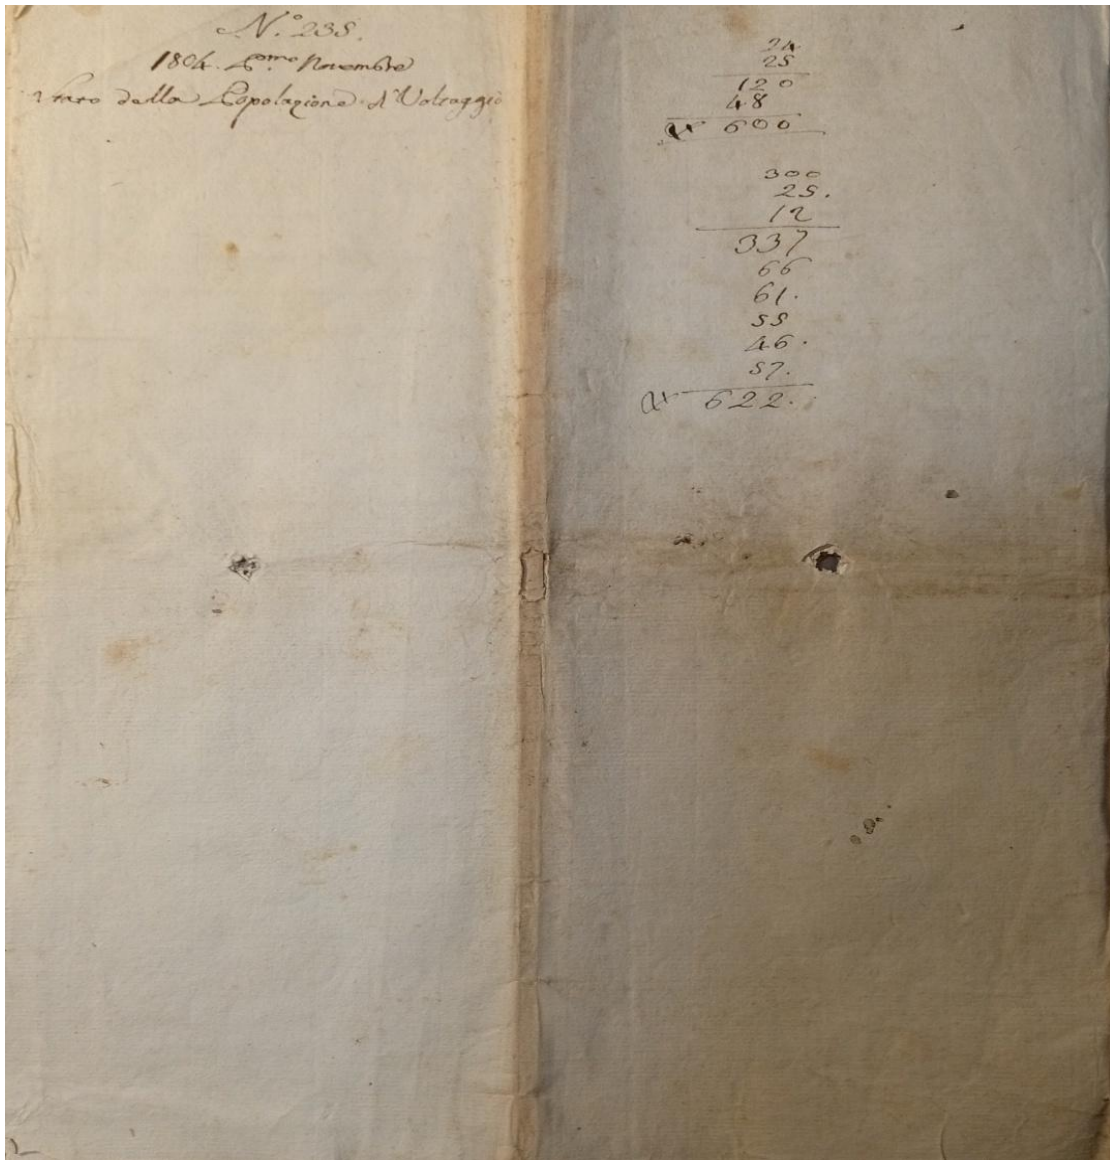 N.° 235.
1804. P.mo Novembre
Stato della Popolazione d'Voltaggio
24
25
120
48
600
300
25.
12
337
66
61.
55
46.
57.
622.